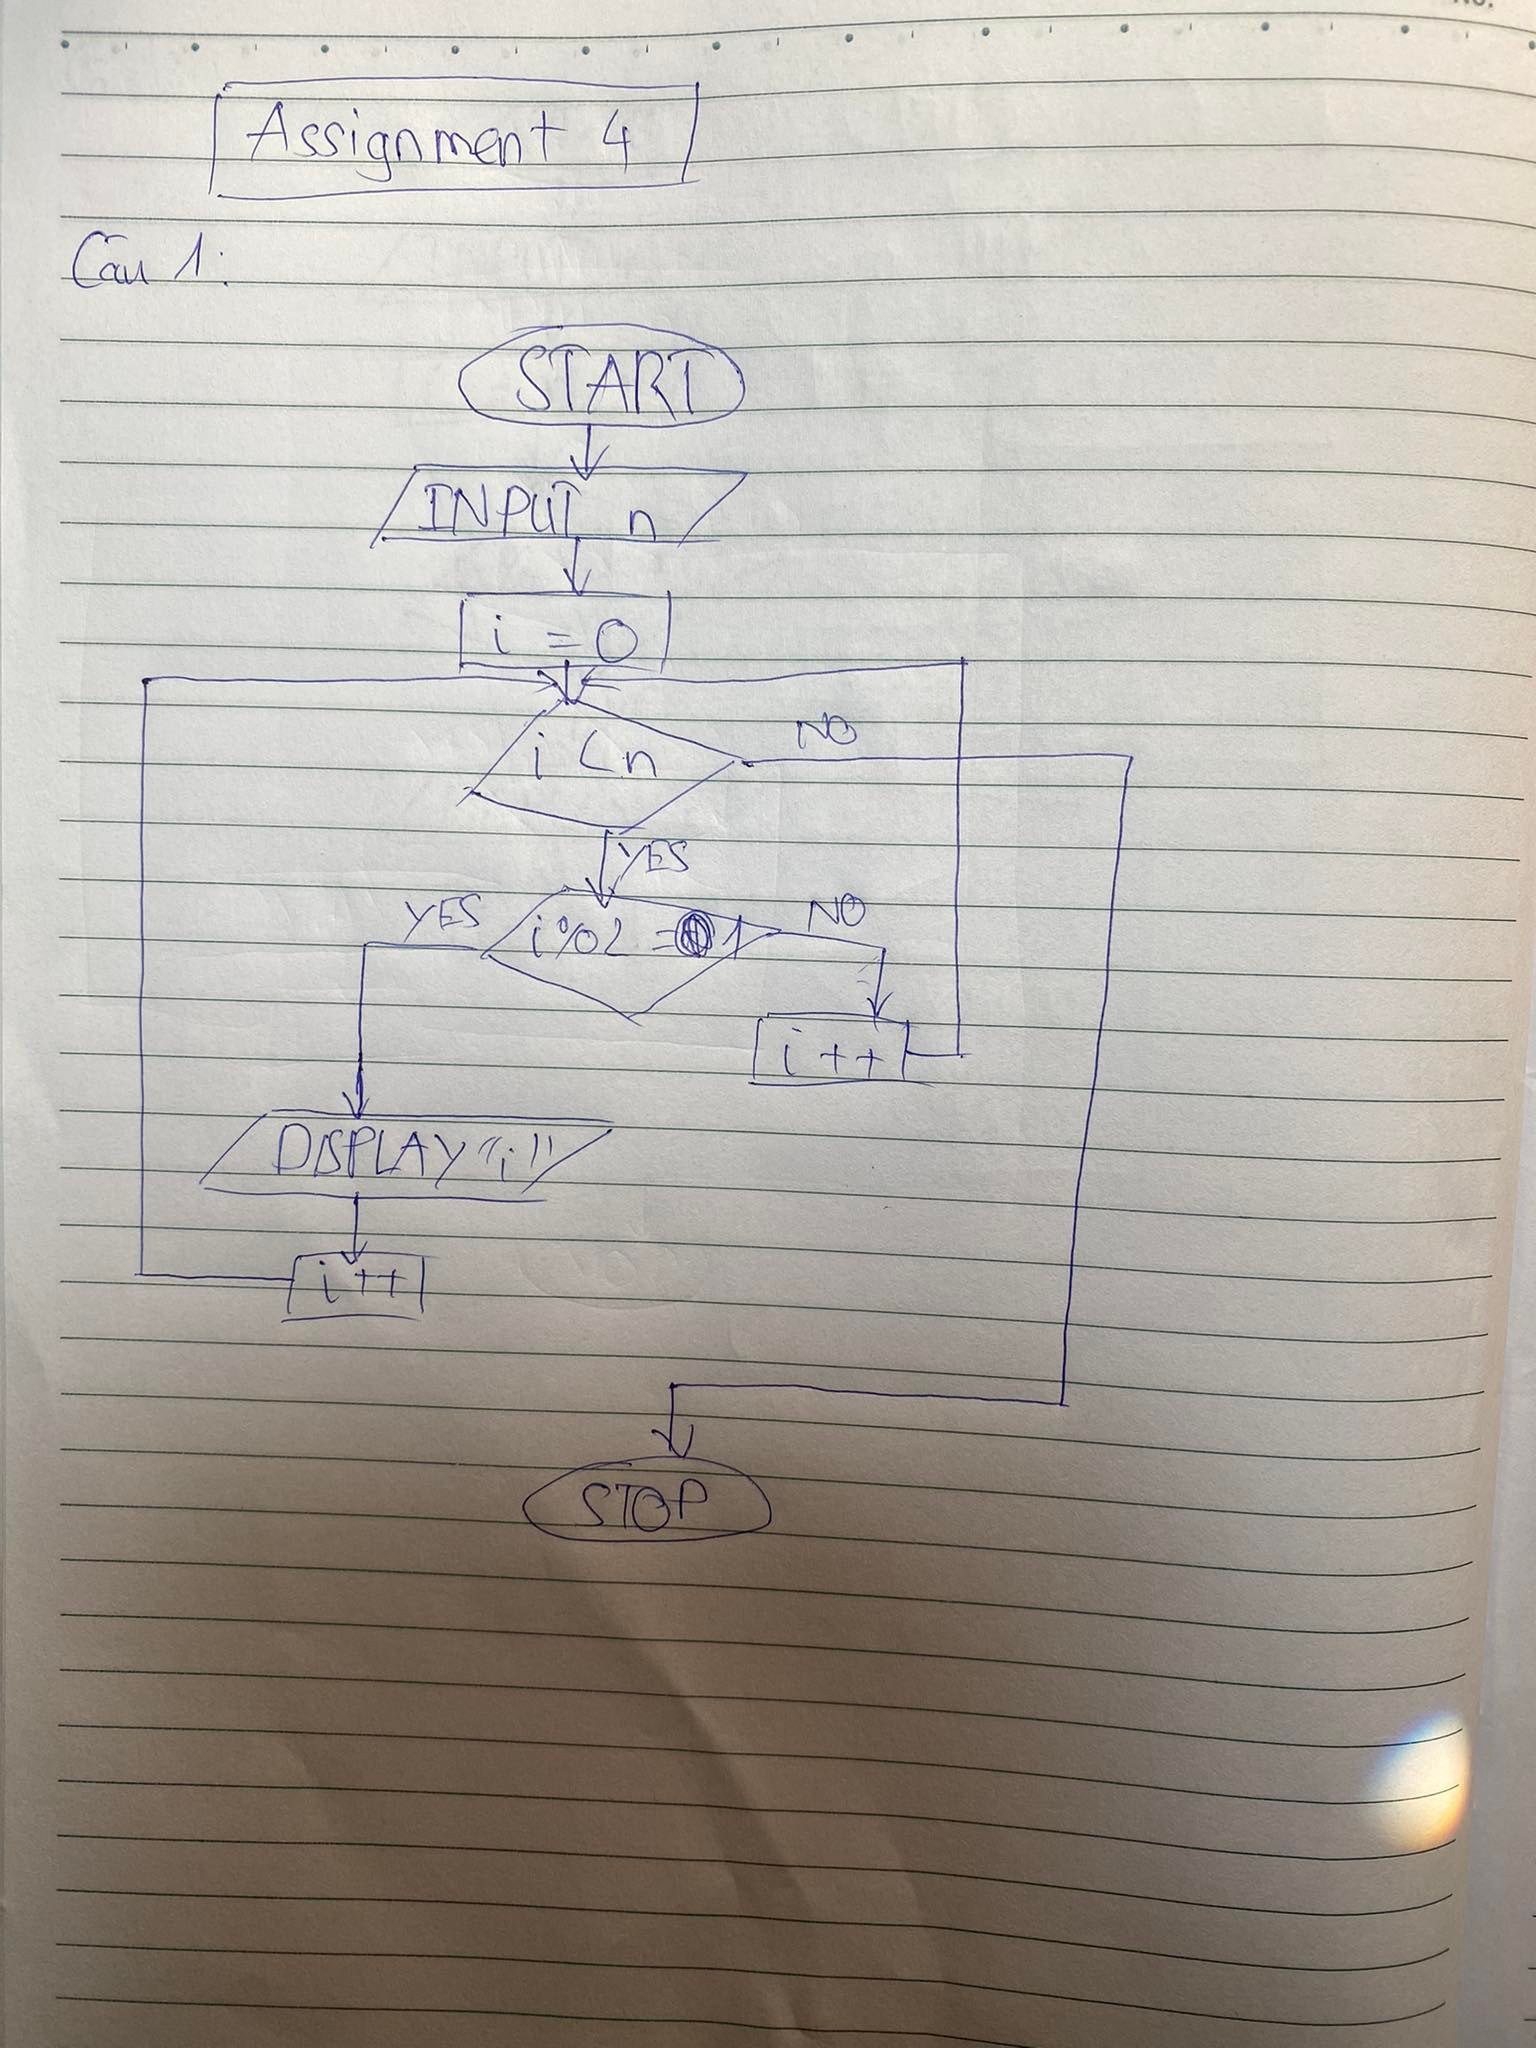 No.
Assignment 4
Câu 1:
START
INPUT n
i = 0
i < n
NO
YES
YES
i%2 = 1
NO
i ++
DISPLAY "i"
i ++
STOP